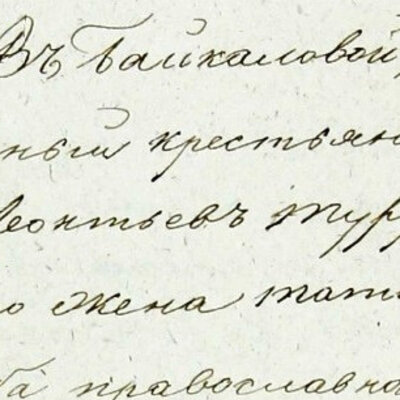 Въ Байкаловой,
ный крестьян
Леонтьевъ Тур
о жена Тати
ба православна